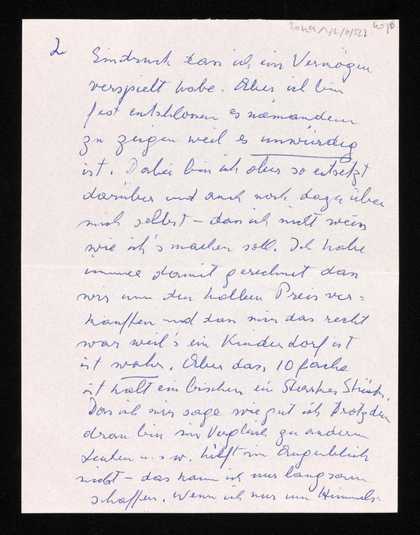 2
Eindruck dass ich ein Vermögen
verspielt habe. Aber ich bin
fest entschlossen es niemandem
zu zeigen weil es unwürdig
ist. Dabei bin ich aber so entsetzt
darüber und auch noch dazu über
mich selbst – dass ich nicht weiss
wie ich's machen soll. Ich habe
immer damit gerechnet dass
wir um den halben Preis ver-
kauffen und dass mir das recht
war weil's ein Kinderdorf ist
ist wahr. Aber das 10 fache
ist halt ein bischen ein Starkes Stück.
Das ich mir sage wie gut ich trotzdem
dran bin im Vergleich zu anderen
Leuten u.s.w. hilft im Augenblick
nicht – das kann ich nur langsam
schaffen. Wenn ich nur um Himmels-